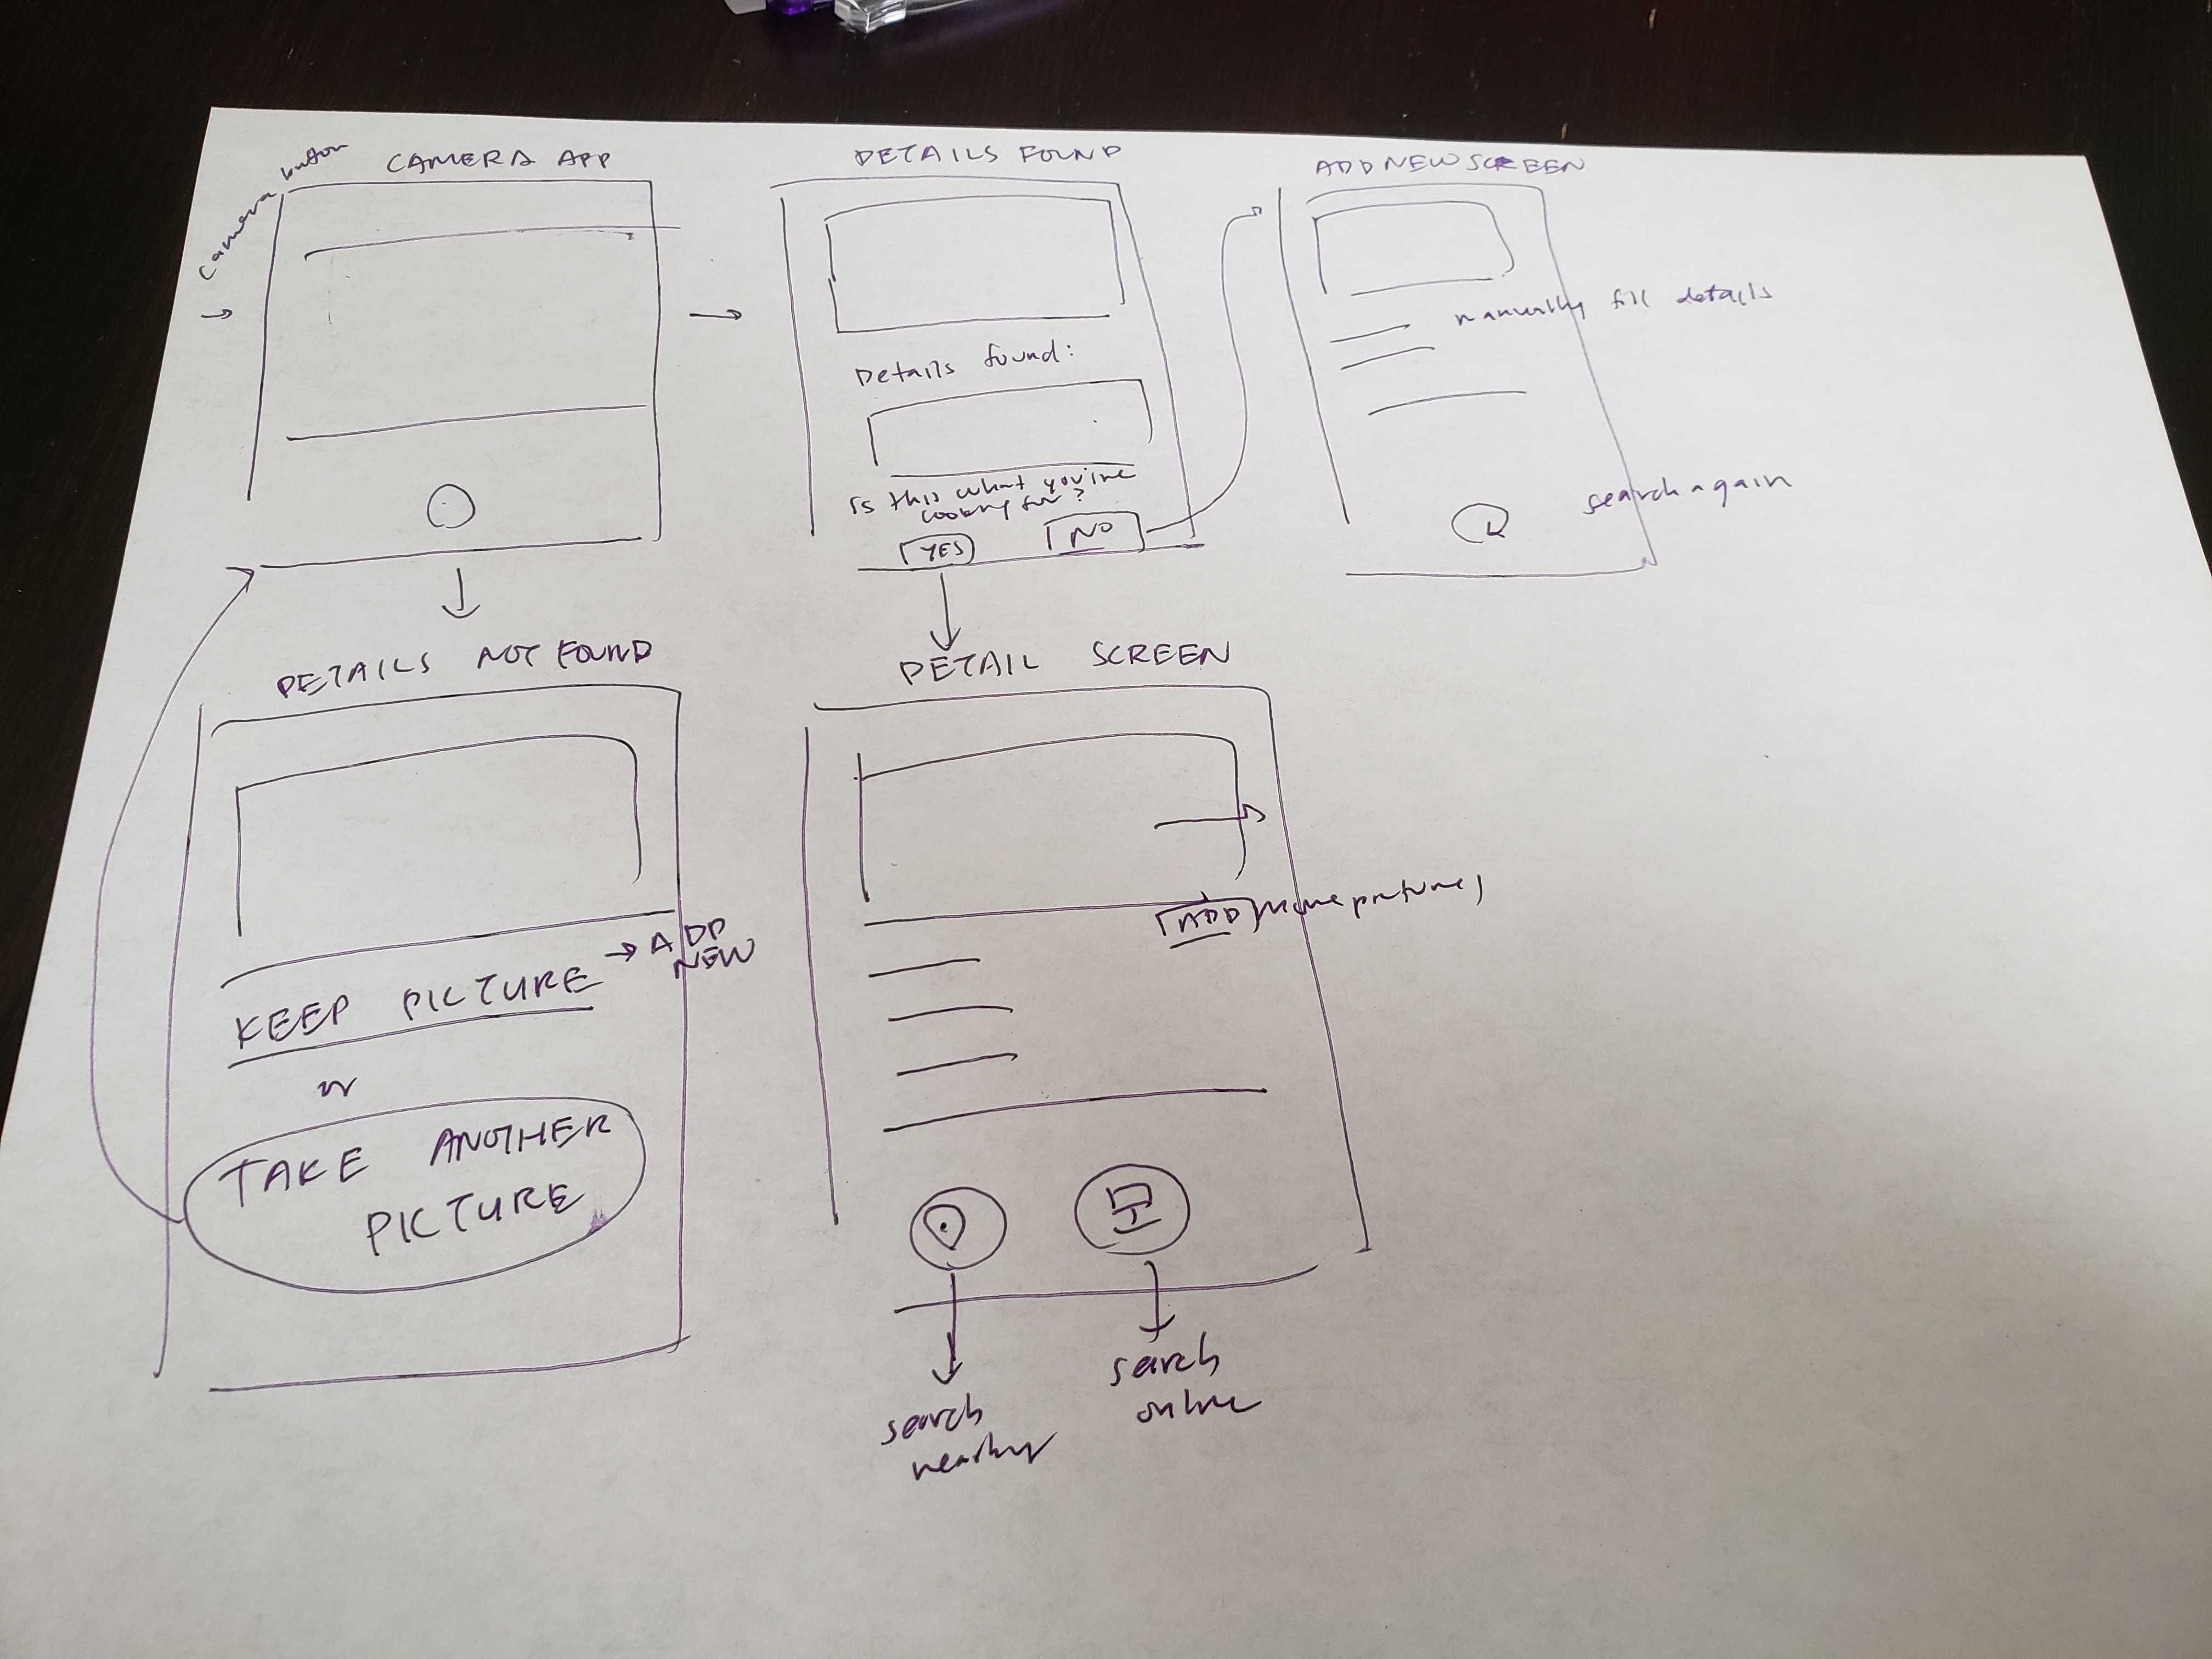 Camera button
CAMERA APP
DETAILS FOUND
Details found:
is this what you're
looking for?
YES
NO
ADD NEW SCREEN
manually fill details
search again
DETAILS NOT FOUND
KEEP PICTURE → ADD
NEW
or
TAKE ANOTHER
PICTURE
DETAIL SCREEN
ADD more pictures
search
nearby
search
online